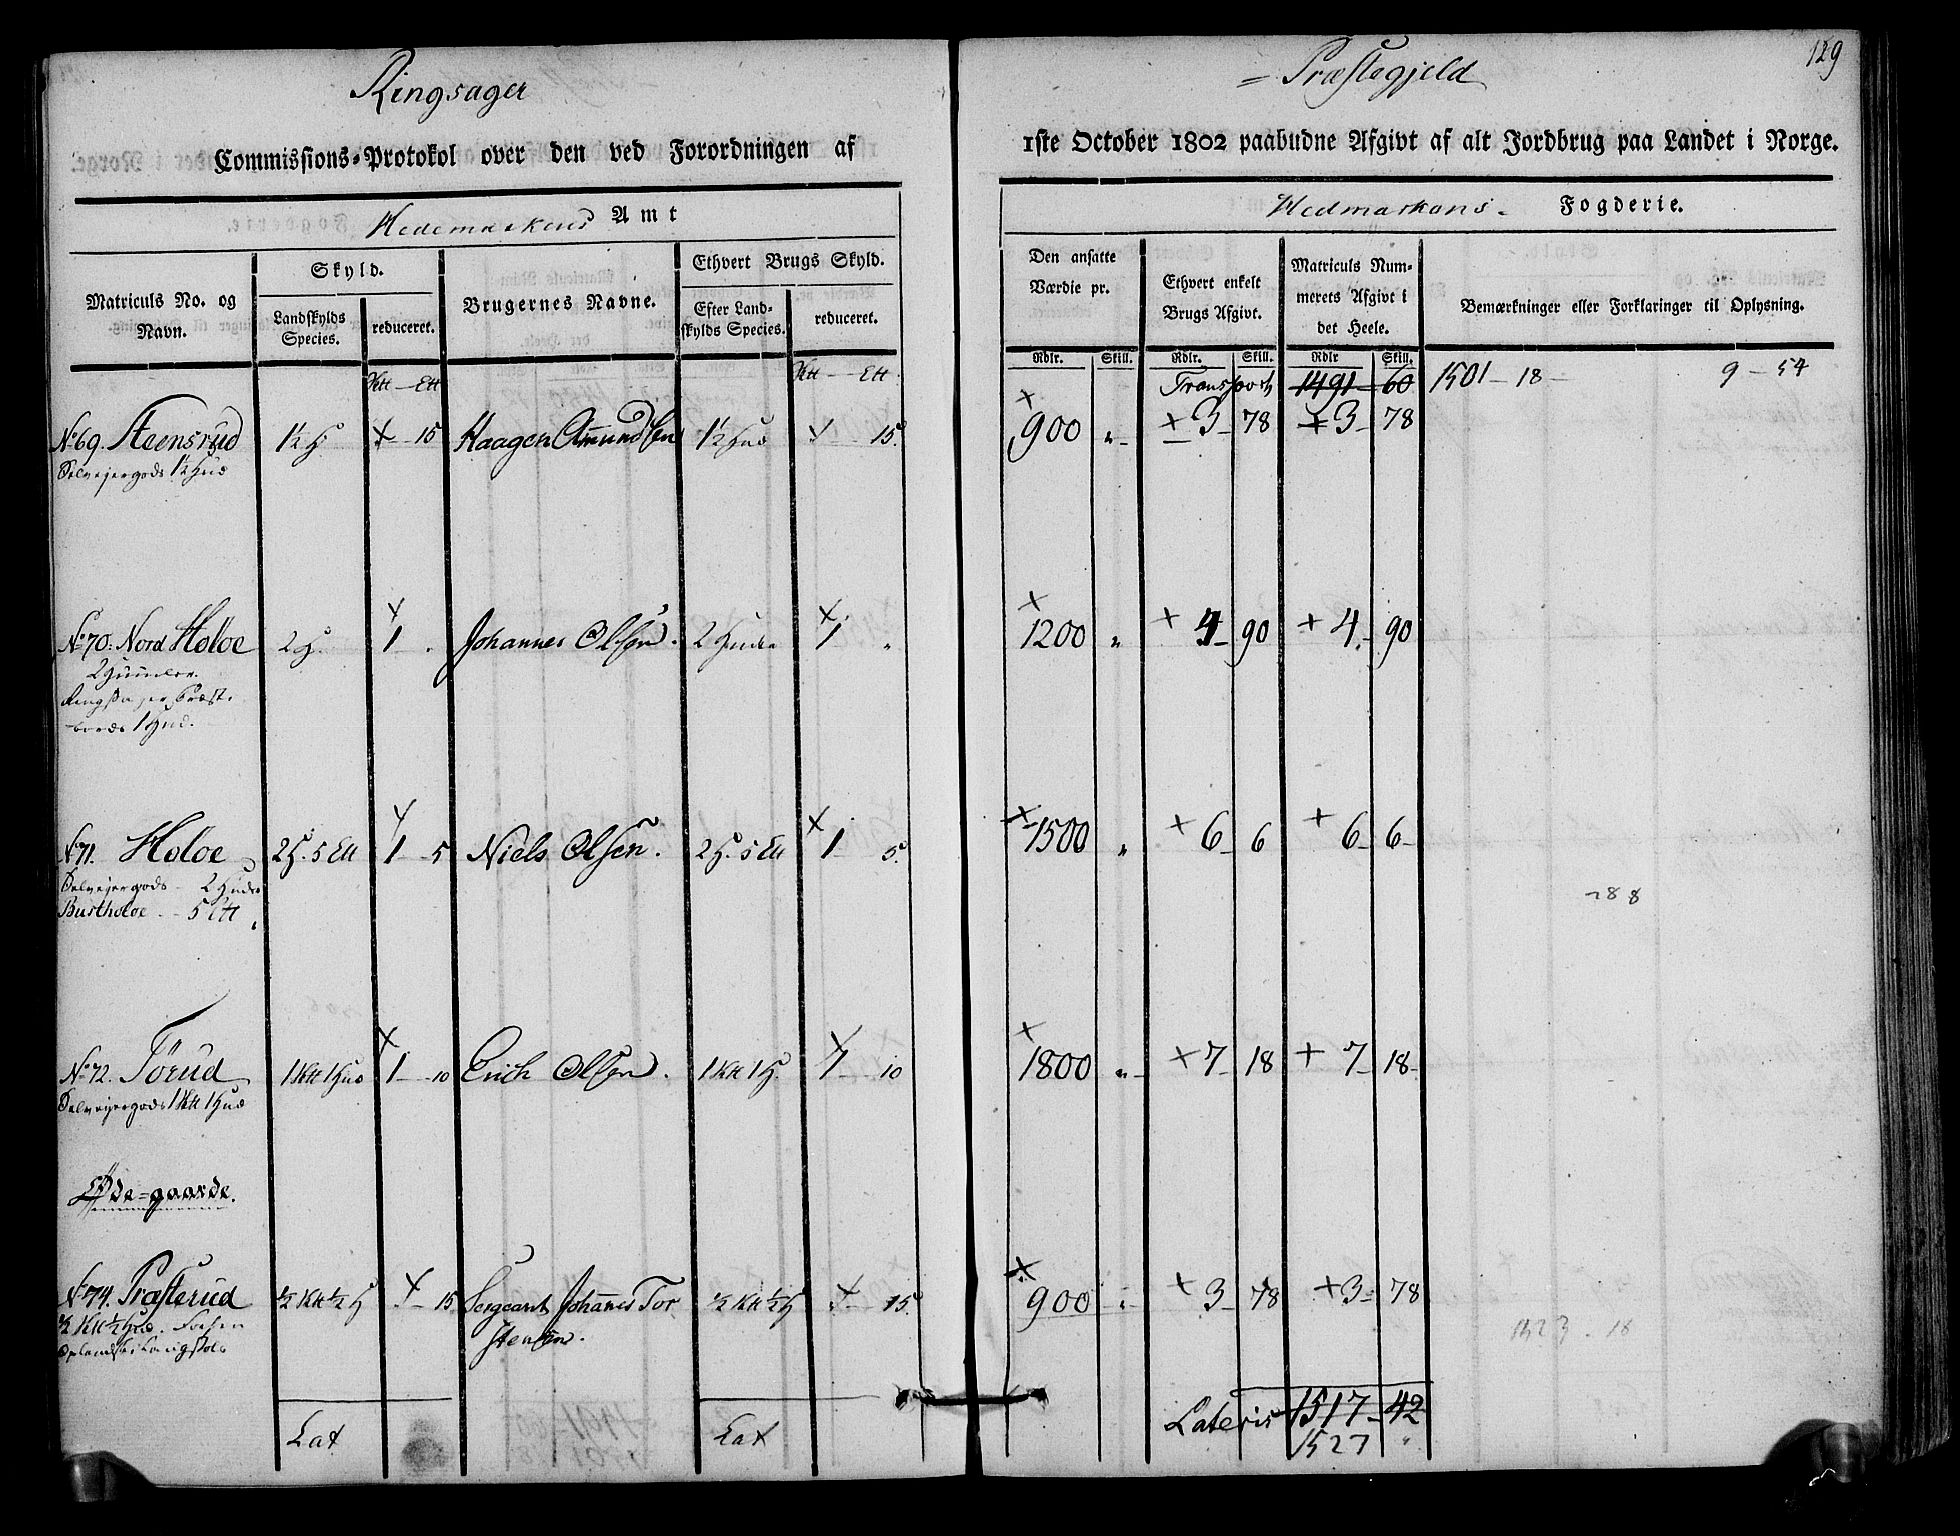 129
Ringsager = Præstegjeld
Commissions-Protokol over den ved Forordningen af 1ste October 1802 paabudne Afgivt af alt Jordbrug paa Landet i Norge.
Hedemarkens Amt
Hedmarkens Fogderie.
Matriculs No. og Navn.
Skyld.
Landskylds Species.
reduceret.
Brugernes Navne.
Ethvert Brugs Skyld.
Efter Landskylds Species.
reduceret.
Den ansatte Værdie pr.
Ethvert enkelt Brugs Afgivt.
Matriculs Nummerets Afgivt i det Heele.
Bemærkninger eller Forklaringer til Oplysning.
Rdlr. Skill. Rdlr. Skill. Rdlr Skill.
Ktt — Ett Ktt — Ett Transport 1491 - 60 1501 - 18 - 9 - 54
No 69. Steensrud 1½ H 15 Haagen Amundsen 1½ Hud 15. 900 „ 3 - 78 3 - 78
Selveyergods 1½ Hud
No 70. Nord Holoe 2 H. 1 „ Johannes Olsen. 2 Huder 1 „ 1200 „ 4 - 90 4 - 90
2 Huuder.
Ringsager Præst-
bords 1 Hud.
No 71. Holoe 2 H. 5 Ett 1 - 5 Niels Olsen. 2 H. 5 Ett 1 - 5. 1500 „ 6 - 6 6 - 6
Selveyergods - 2 Huder
Burtholoe - 5 Ett
288
No 72. Törud 1 Ktt 1 Hud 1 - 10 Erich Olsen. 1 Ktt 1 H. 1 - 10 1800 „ 7 - 18 7 - 18
Selveyergods 1 Ktt 1 Hud
Øde-gaarde.
No 74. Præsterud ½ Ktt ½ H 15 Sergeant Johannes Tor ½ Ktt ½ H 15. 900 „ 3 - 78 3 - 78
½ Ktt ½ Hud.
stensen.
1523 - 18
Lat Lat Lateris 1517 - 42
1527 „